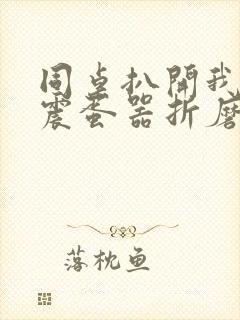 同桌扒開我
震蛋器折磨
落枕鱼